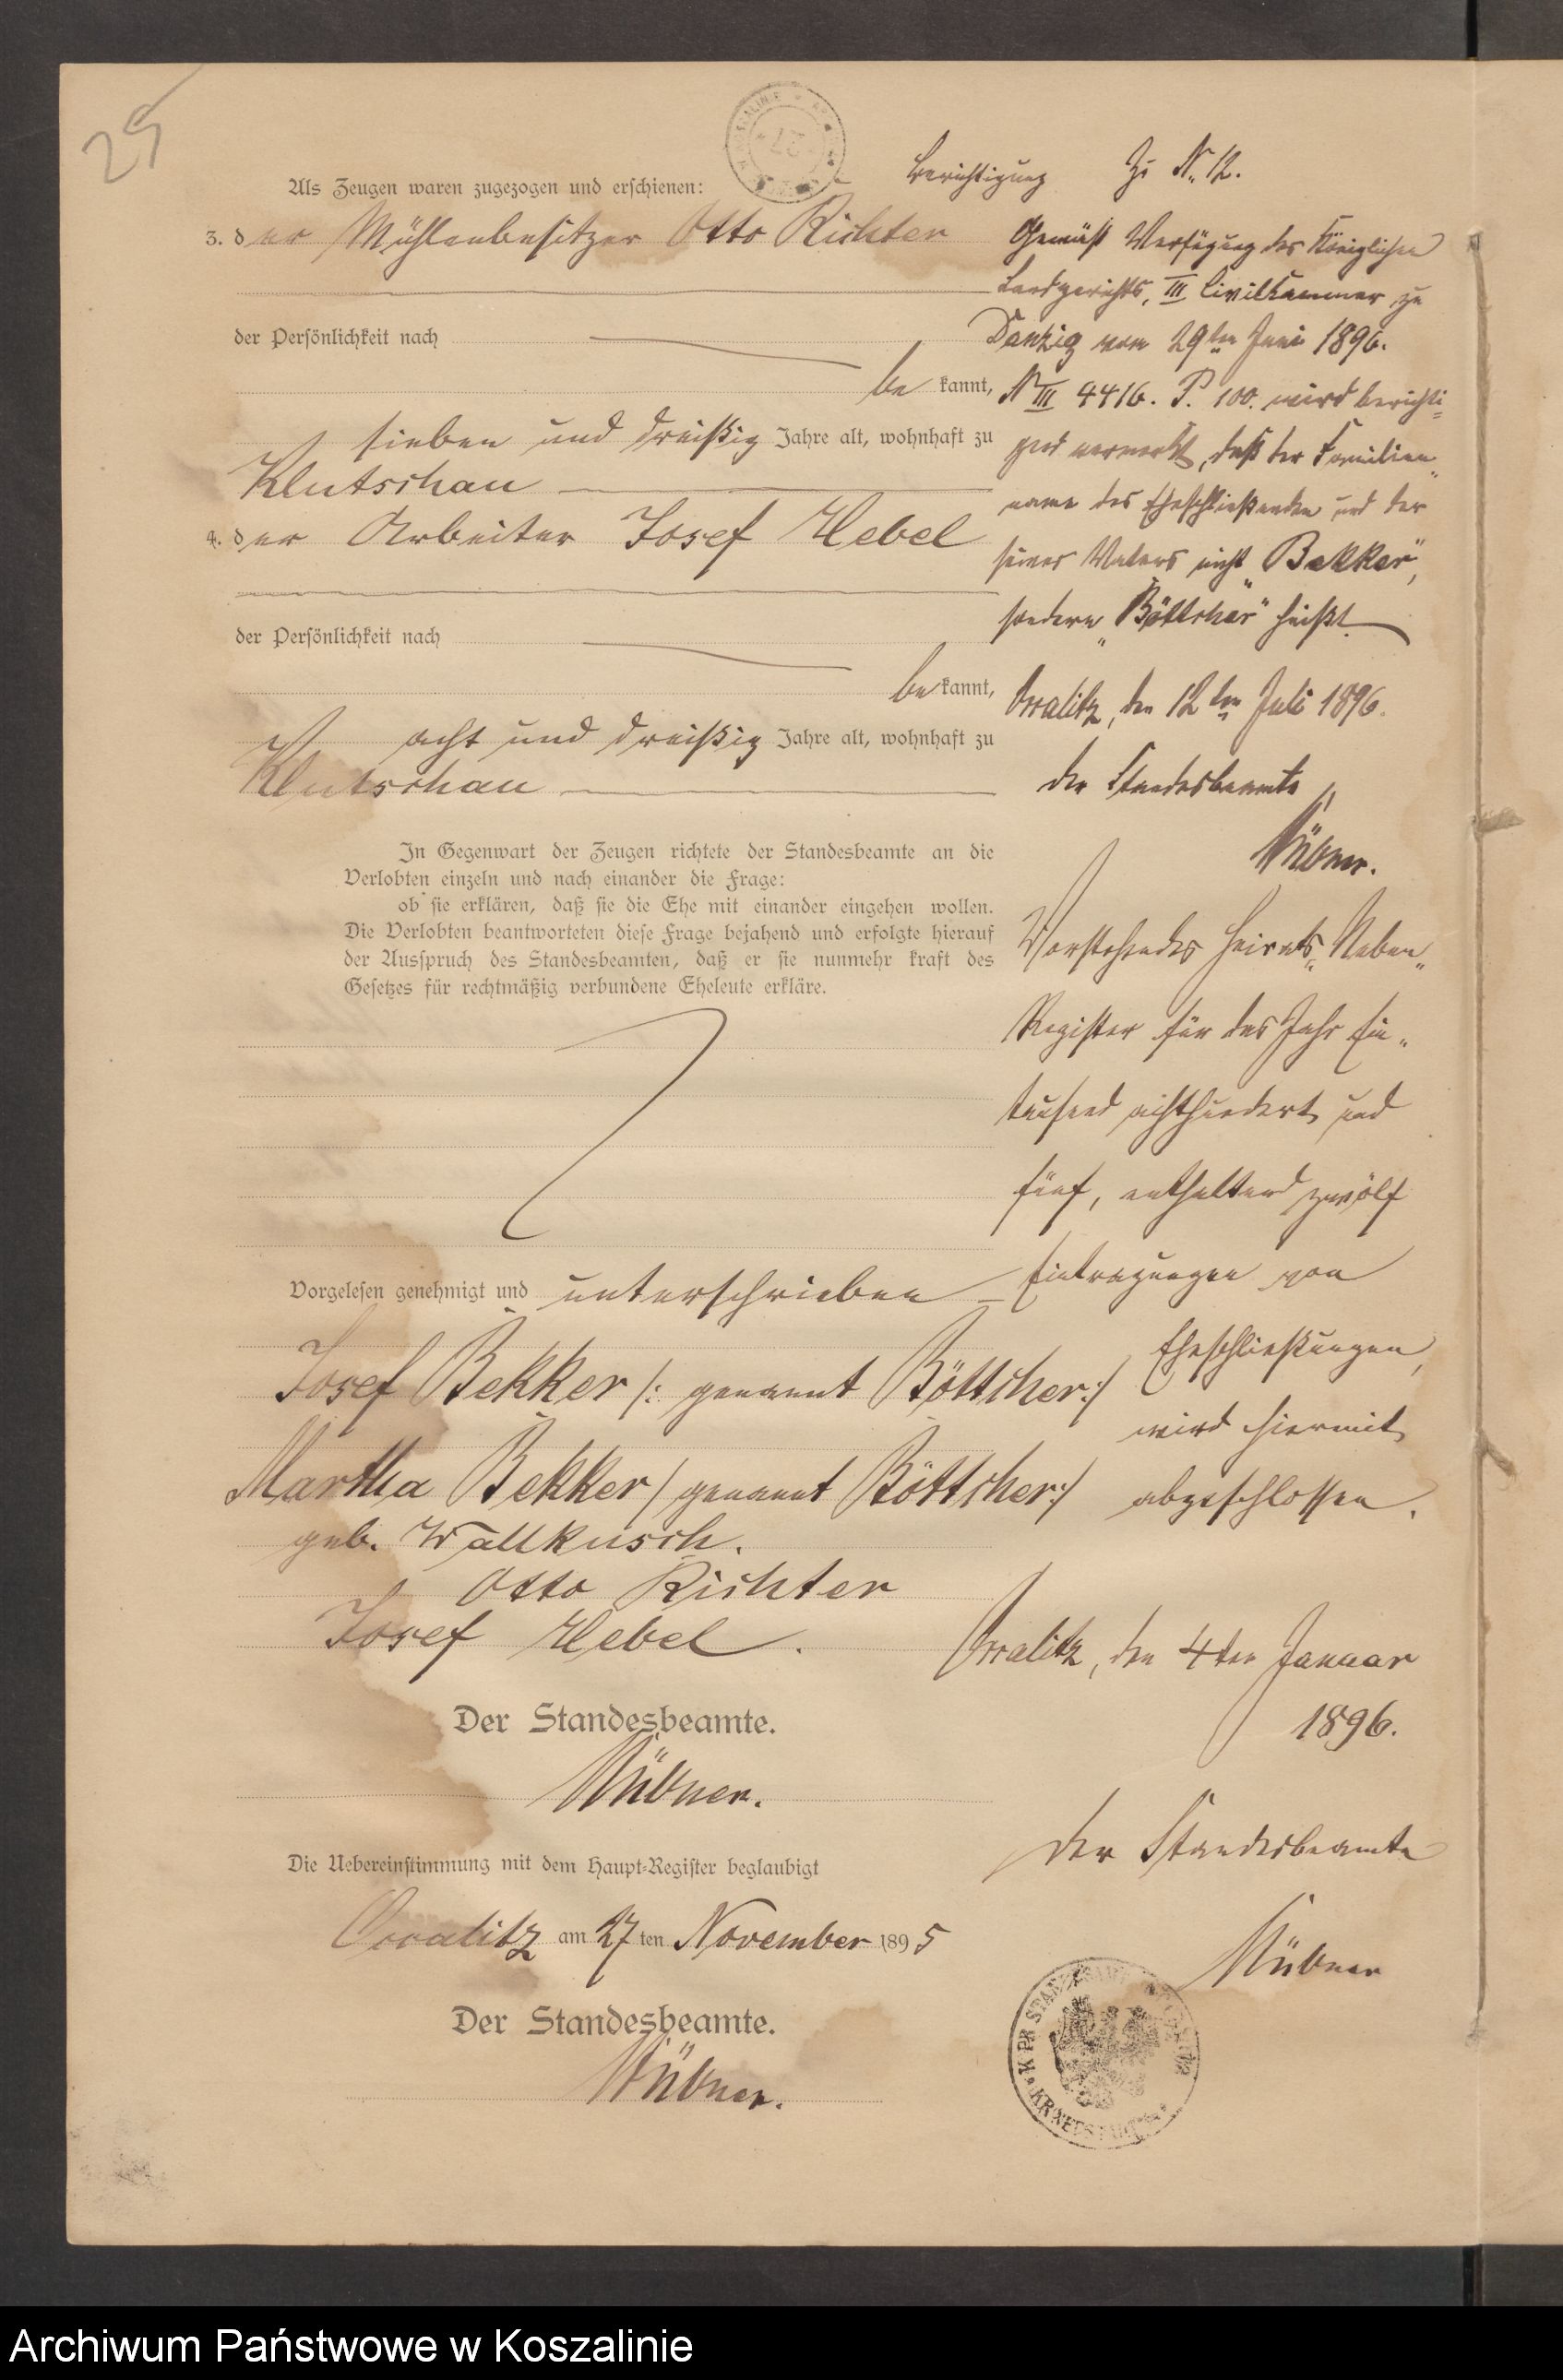 25
Als Zeugen waren zugezogen und erschienen:
3. der Mühlenbesitzer Otto Richter
der Persönlichkeit nach
bekannt,
sieben und dreißig Jahre alt, wohnhaft zu
Klutschau
4. der Arbeiter Josef Hebel
der Persönlichkeit nach
bekannt,
acht und dreißig Jahre alt, wohnhaft zu
Klutschau
In Gegenwart der Zeugen richtete der Standesbeamte an die
Verlobten einzeln und nach einander die Frage:
ob sie erklären, daß sie die Ehe mit einander eingehen wollen.
Die Verlobten beantworteten diese Frage bejahend und erfolgte hierauf
der Ausspruch des Standesbeamten, daß er sie nunmehr kraft des
Gesetzes für rechtmäßig verbundene Eheleute erkläre.
Vorgelesen genehmigt und unterschrieben
Josef Bekker /: genannt Böttcher :/
Martha Bekker / genannt Böttcher :/
geb. Wallkusch.
Otto Richter
Josef Hebel.
Der Standesbeamte.
Die Uebereinstimmung mit dem Haupt-Register beglaubigt
am 27ten November 1895
Der Standesbeamte.
Berichtigung Zu N. 12.
Gemäß Verfügung des Königlichen
Landgerichts, III Civilkammer zu
Danzig vom 29ten Juni 1896.
N III 4416. P. 100. wird berichti-
gend vermerkt, daß der Familien-
name des Eheschließenden und der
seines Vaters nicht "Bekker",
sondern "Böttcher" heißt.
den 12ten Juli 1896.
Der Standesbeamte
Vorstehendes Heirats-Neben-
Register für das Jahr Ein-
tausend achthundert und
fünf, enthaltend zwölf
Eintragungen von
Eheschließungen,
wird hiermit
abgeschlossen.
den 4ten Januar
1896.
Der Standesbeamte
Archiwum Państwowe w Koszalinie